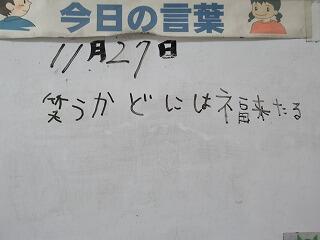 今日の言葉
11月27日
笑うかどには福来たる